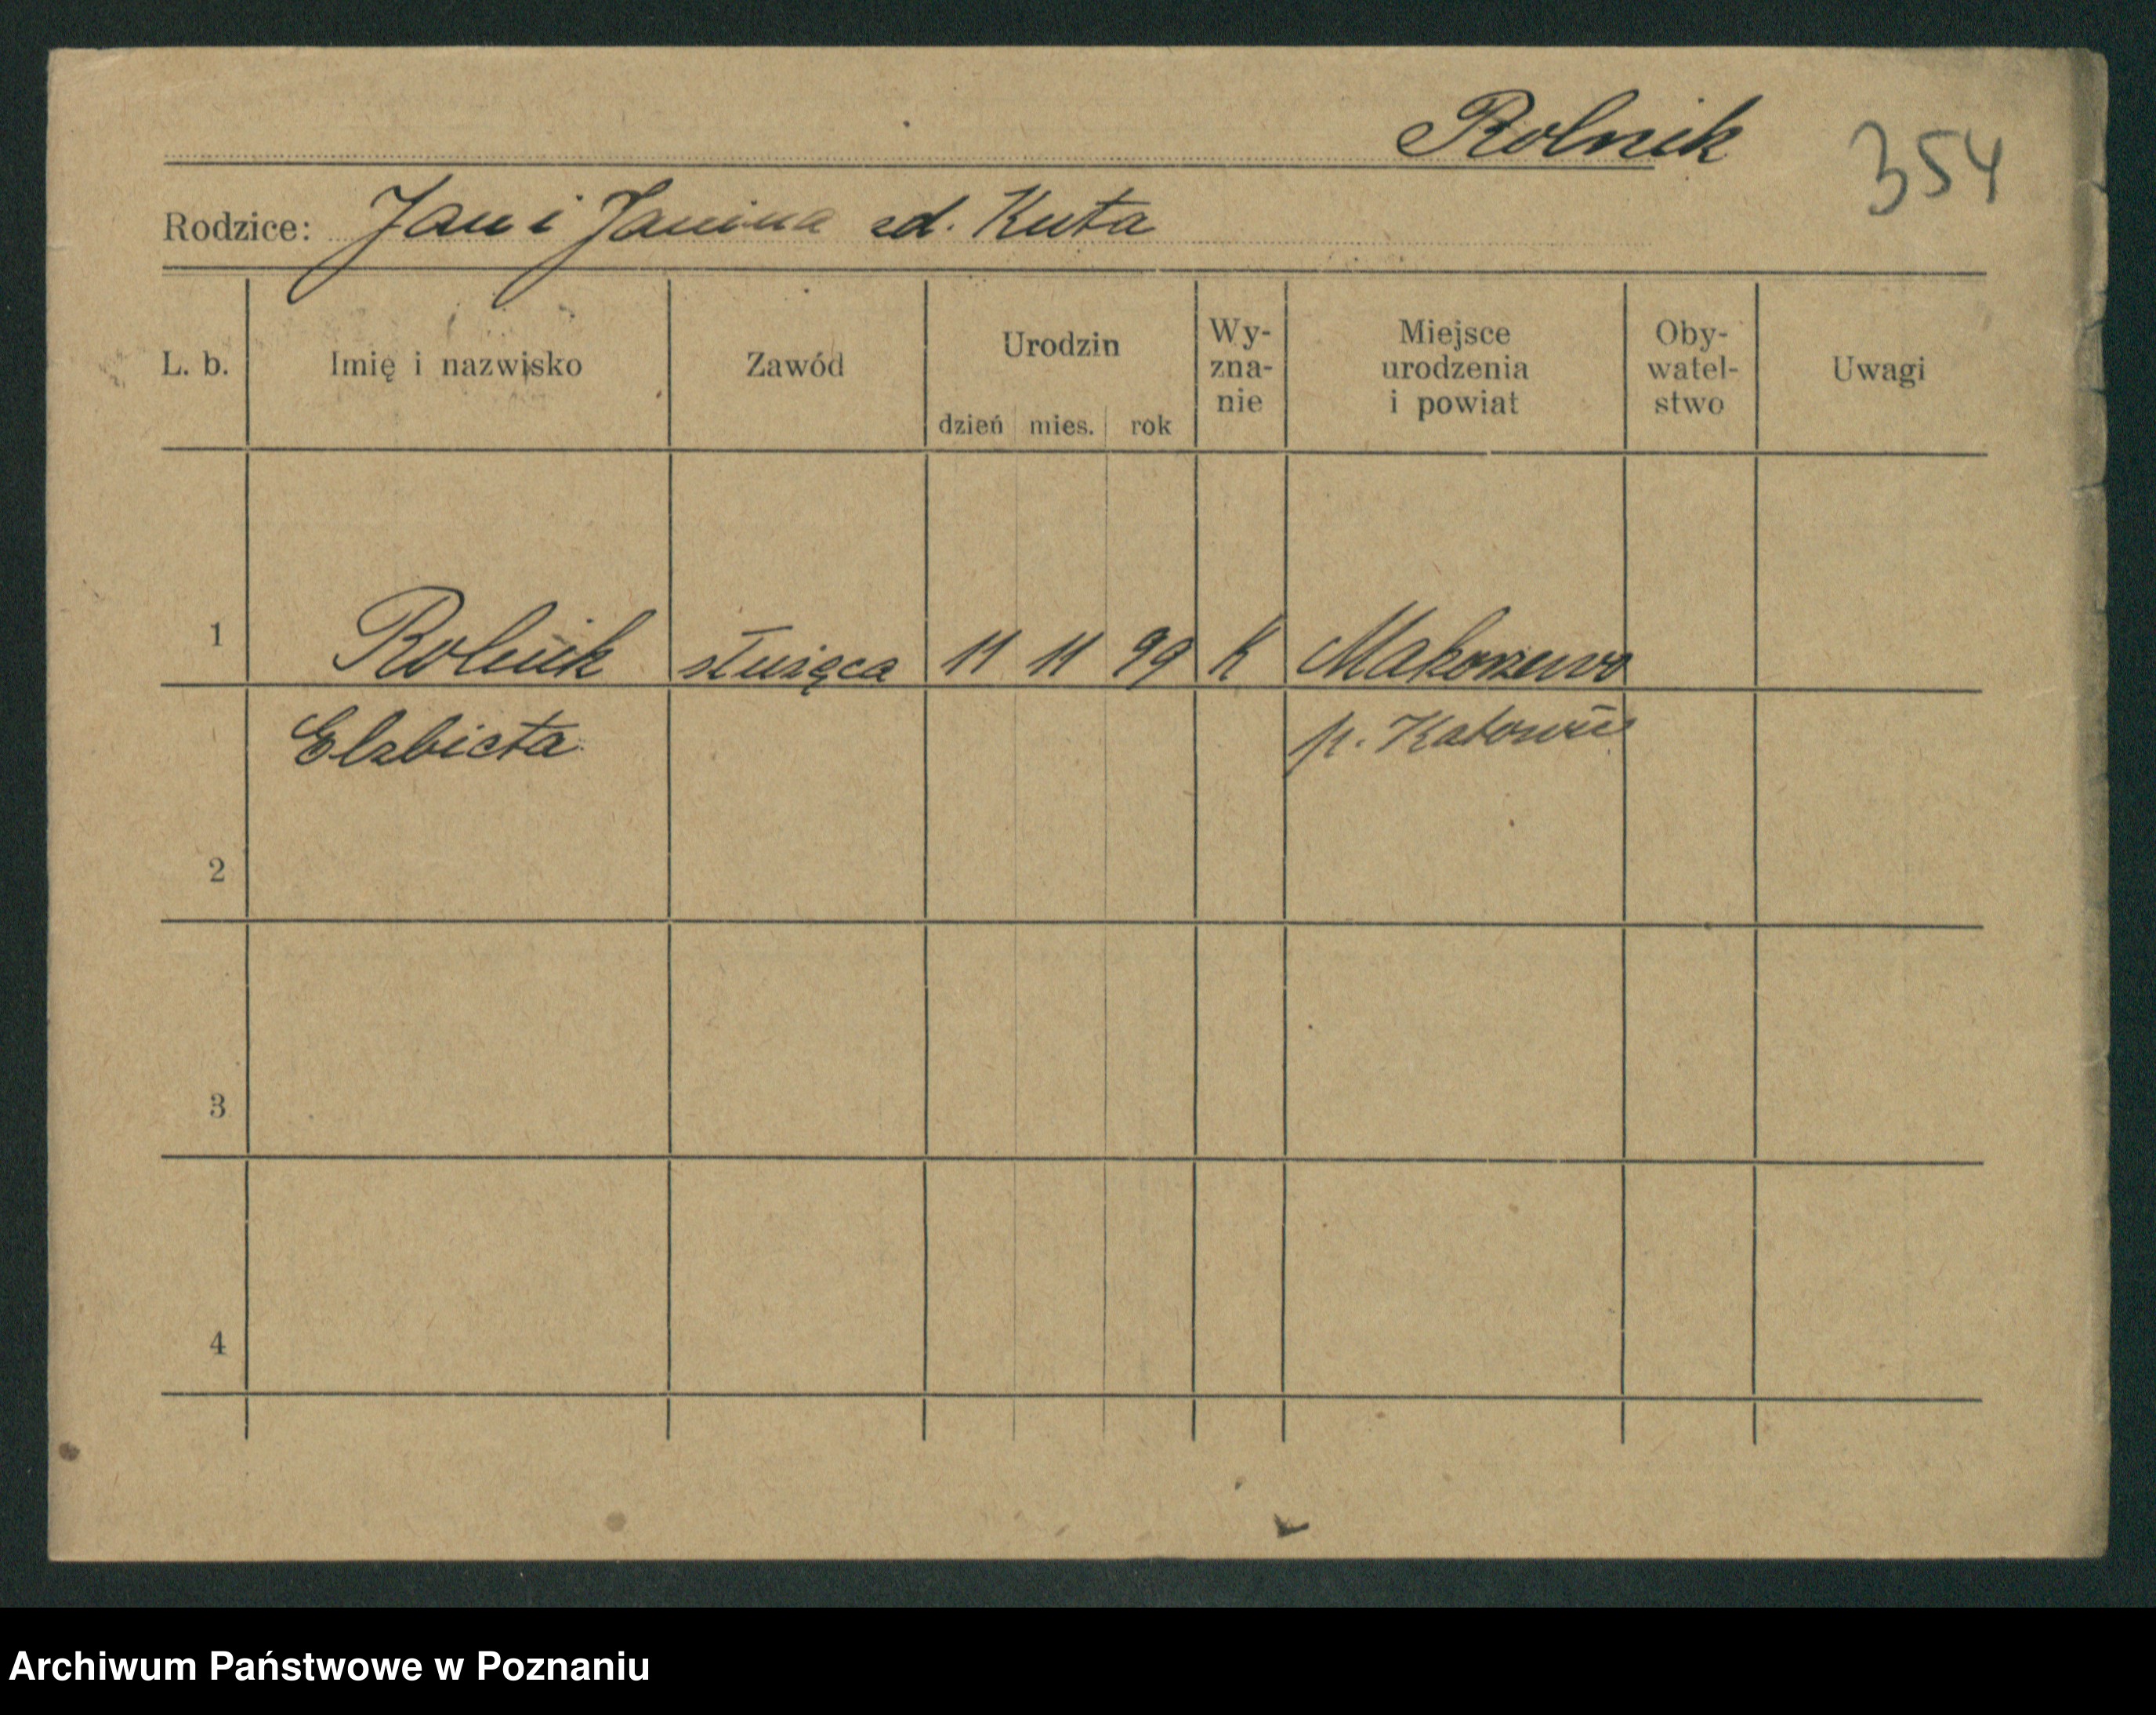 Rolnik
354
Rodzice: Jan i Janina zd. Kuta
L. b. Imię i nazwisko Zawód Urodzin dzień mies. rok Wy-zna-nie Miejsce urodzenia i powiat Oby-watel-stwo Uwagi
1 Rolnik służąca 11 11 99 K Makoszewo
Elzbieta p. Katowic
2
3
4
Archiwum Państwowe w Poznaniu